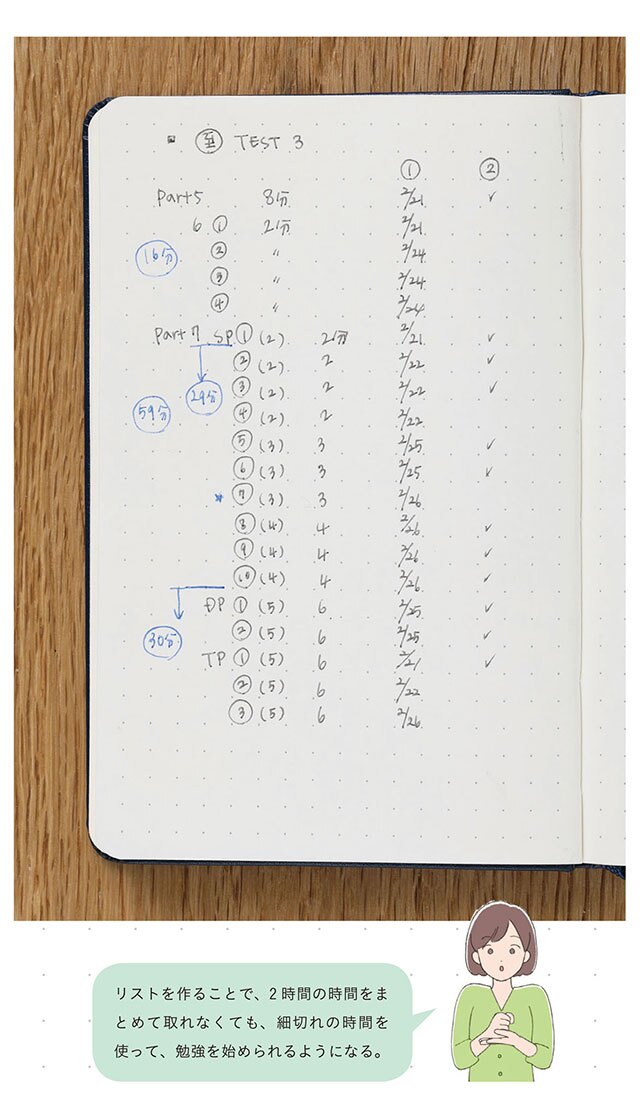 ■ 至 TEST 3
① ②
Part5 8分 2/21 ✓
6 ① 2分 2/21
16分 ② 〃 2/24
③ 〃 2/24
④ 〃 2/24
Part7 SP ① (2) 2分 2/21 ✓
② (2) 2 2/22 ✓
29分 ③ (2) 2 2/22 ✓
59分 ④ (2) 2 2/22
⑤ (3) 3 2/25 ✓
⑥ (3) 3 2/25 ✓
* ⑦ (3) 3 2/26
⑧ (4) 4 2/26 ✓
⑨ (4) 4 2/26 ✓
⑩ (4) 4 2/26 ✓
DP ① (5) 6 2/25 ✓
30分 ② (5) 6 2/25 ✓
TP ① (5) 6 2/21 ✓
② (5) 6 2/22
③ (5) 6 2/26
リストを作ることで、2時間の時間をま
とめて取れなくても、細切れの時間を
使って、勉強を始められるようになる。